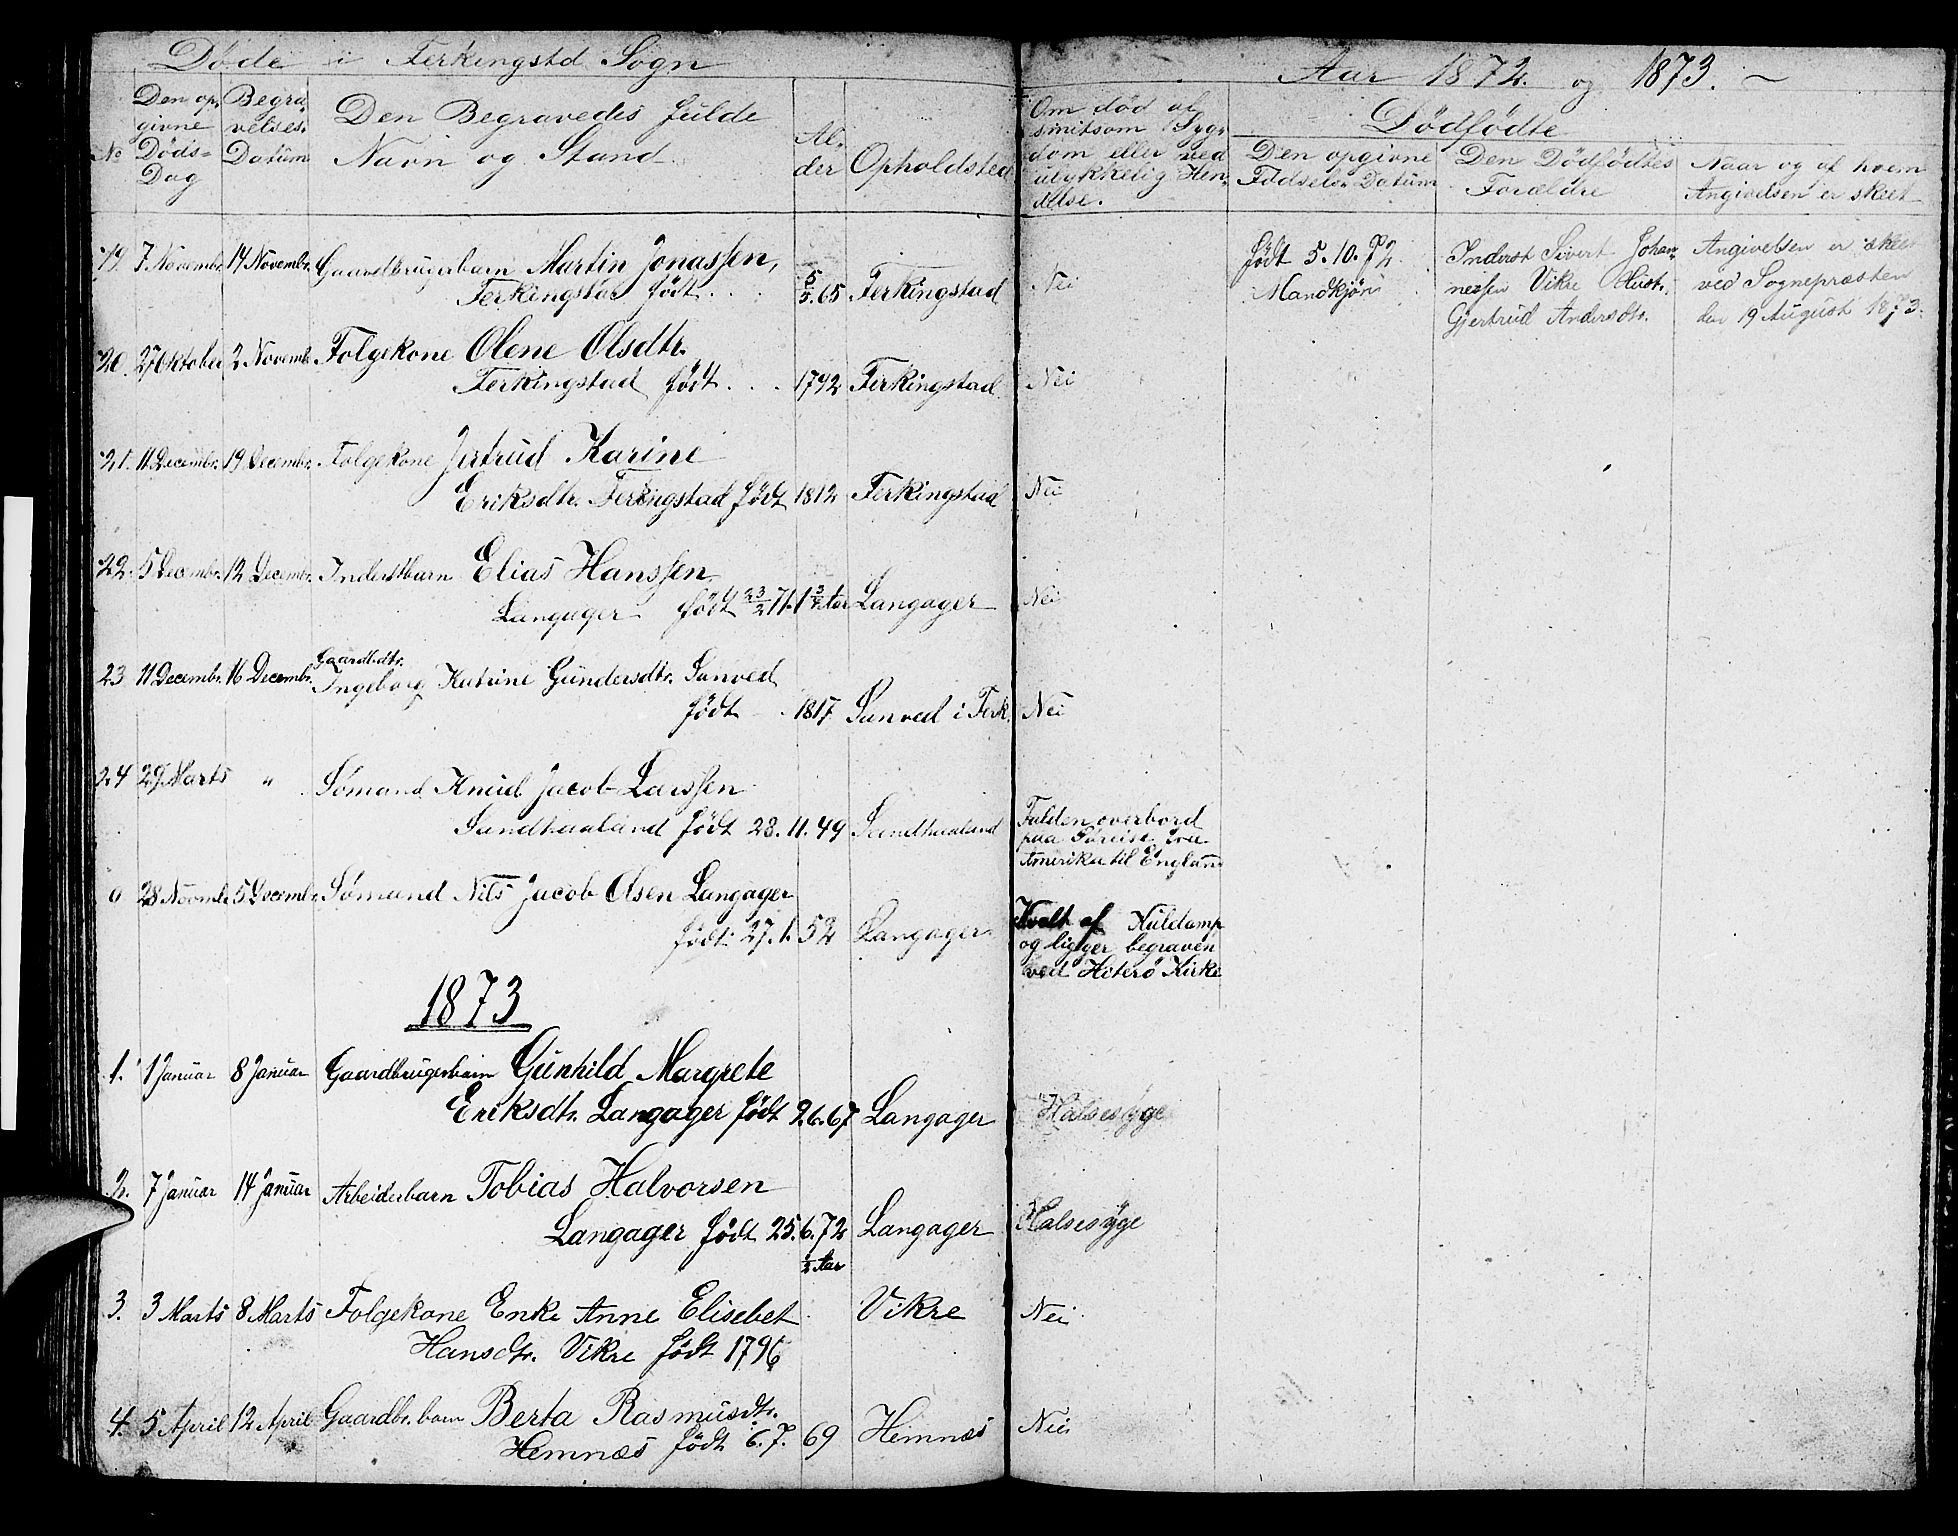 Døde i Ferkingstd Sogn
Aar 1872 og 1873.
No
Den op-
givne
Døds-
Dag
Begra-
velses-
Datum
Den Begravedes fulde
Navn og Stand
Al-
der
Opholdsted
Om død af
smitsom Syg-
dom eller ved
ulykkelig Hen-
delse.
Dødfødte
Den opgivne
Fødsels Datum
Den Dødfødtes
Forældre
Naar og af hvem
Angivelsen er skeet
19. 7 Novembr. 14 Novembr. Gaardbrugerbarn Martin Jonassen,
Ferkingstad født . . 5/5. 65 Ferkingstad Nei
født 5.10.72
Mandkjøn
Inderst Sivert Johan-
nessen Vikre Hust.
Gjertrud Andersdtr.
Angivelsen er skeet
ved Sognepræsten
den 19 August 1873.
20. 27 Oktober 2 Novemb. Folgekone Olene Olsdtr.
Ferkingstad født . . . 1792 Ferkingstad Nei
21. 11 Decembr. 19 Decembr. Folgekone Jertrud Karine
Eriksdtr. Ferkingstad født 1812 Ferkingstad Nei
22. 5 Decembr. 12 Decembr. Inderstbarn Elias Hanssen
Langager født 23/2 71. 1 3/4 Aar Langager Nei
23 11 Decembr. 16 Decembr. Gaardbdtr.
Ingeborg Katrine Gundersdtr. Sanved
født . 1817 Sanved i Ferk. Nei
24 29 Marts " Sømand Knud Jacob Larssen
Sandhaaland født 23. 11. 49 Sandhaaland
Falden overbord
paa Søreise fra
Amerika til England
0 28 Novmbr 5 Decembr. Sømand Nils Jacob Olsen Langager
født 27. 1. 52 Langager.
Kvalt af Kuldamp
og ligger begraven
ved Hiterø Kirke
1873
1. 1 Januar 8 Januar Gaardbrugerbarn Gunhild Margrete
Eriksdtr. Langager født 2.6.67 Langager Halsesyge
2. 7 Januar 14 Januar Arbeiderbarn Tobias Halvorsen
Langager født 25.6.72 Langager Halsesyge
1/2 Aar
3. 3 Marts 8 Marts Folgekone Enke Anne Elisebet Vikre Nei
Hansdtr. Vikre født 1796
4. 5 April 12 April Gaardbr. barn Berta Rasmusdtr.
Hemnæs født 6. 7. 69 Hemnæs Nei